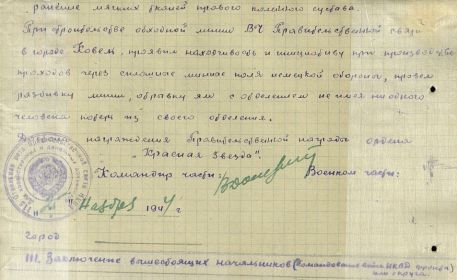 ранение мягких тканей правого коленного сустава.
При строительстве обходной линии ВЧ Правительственной связи
в городе Ковель, проявил находчивость и инициативу при производстве
проходов через сплошные минные поля немецкой обороны, провел
разбивку линии, отравку ям с отделением не имея ни одного
человека потерь из своего отделения.
Достоин награждения Правительственной награды ордена
"Красная Звезда".
Командир части: Военком части:
" Ноября 1944 г
город
III. Заключение вышестоящих начальников (Командование войск НКВД фронта)
или округа.